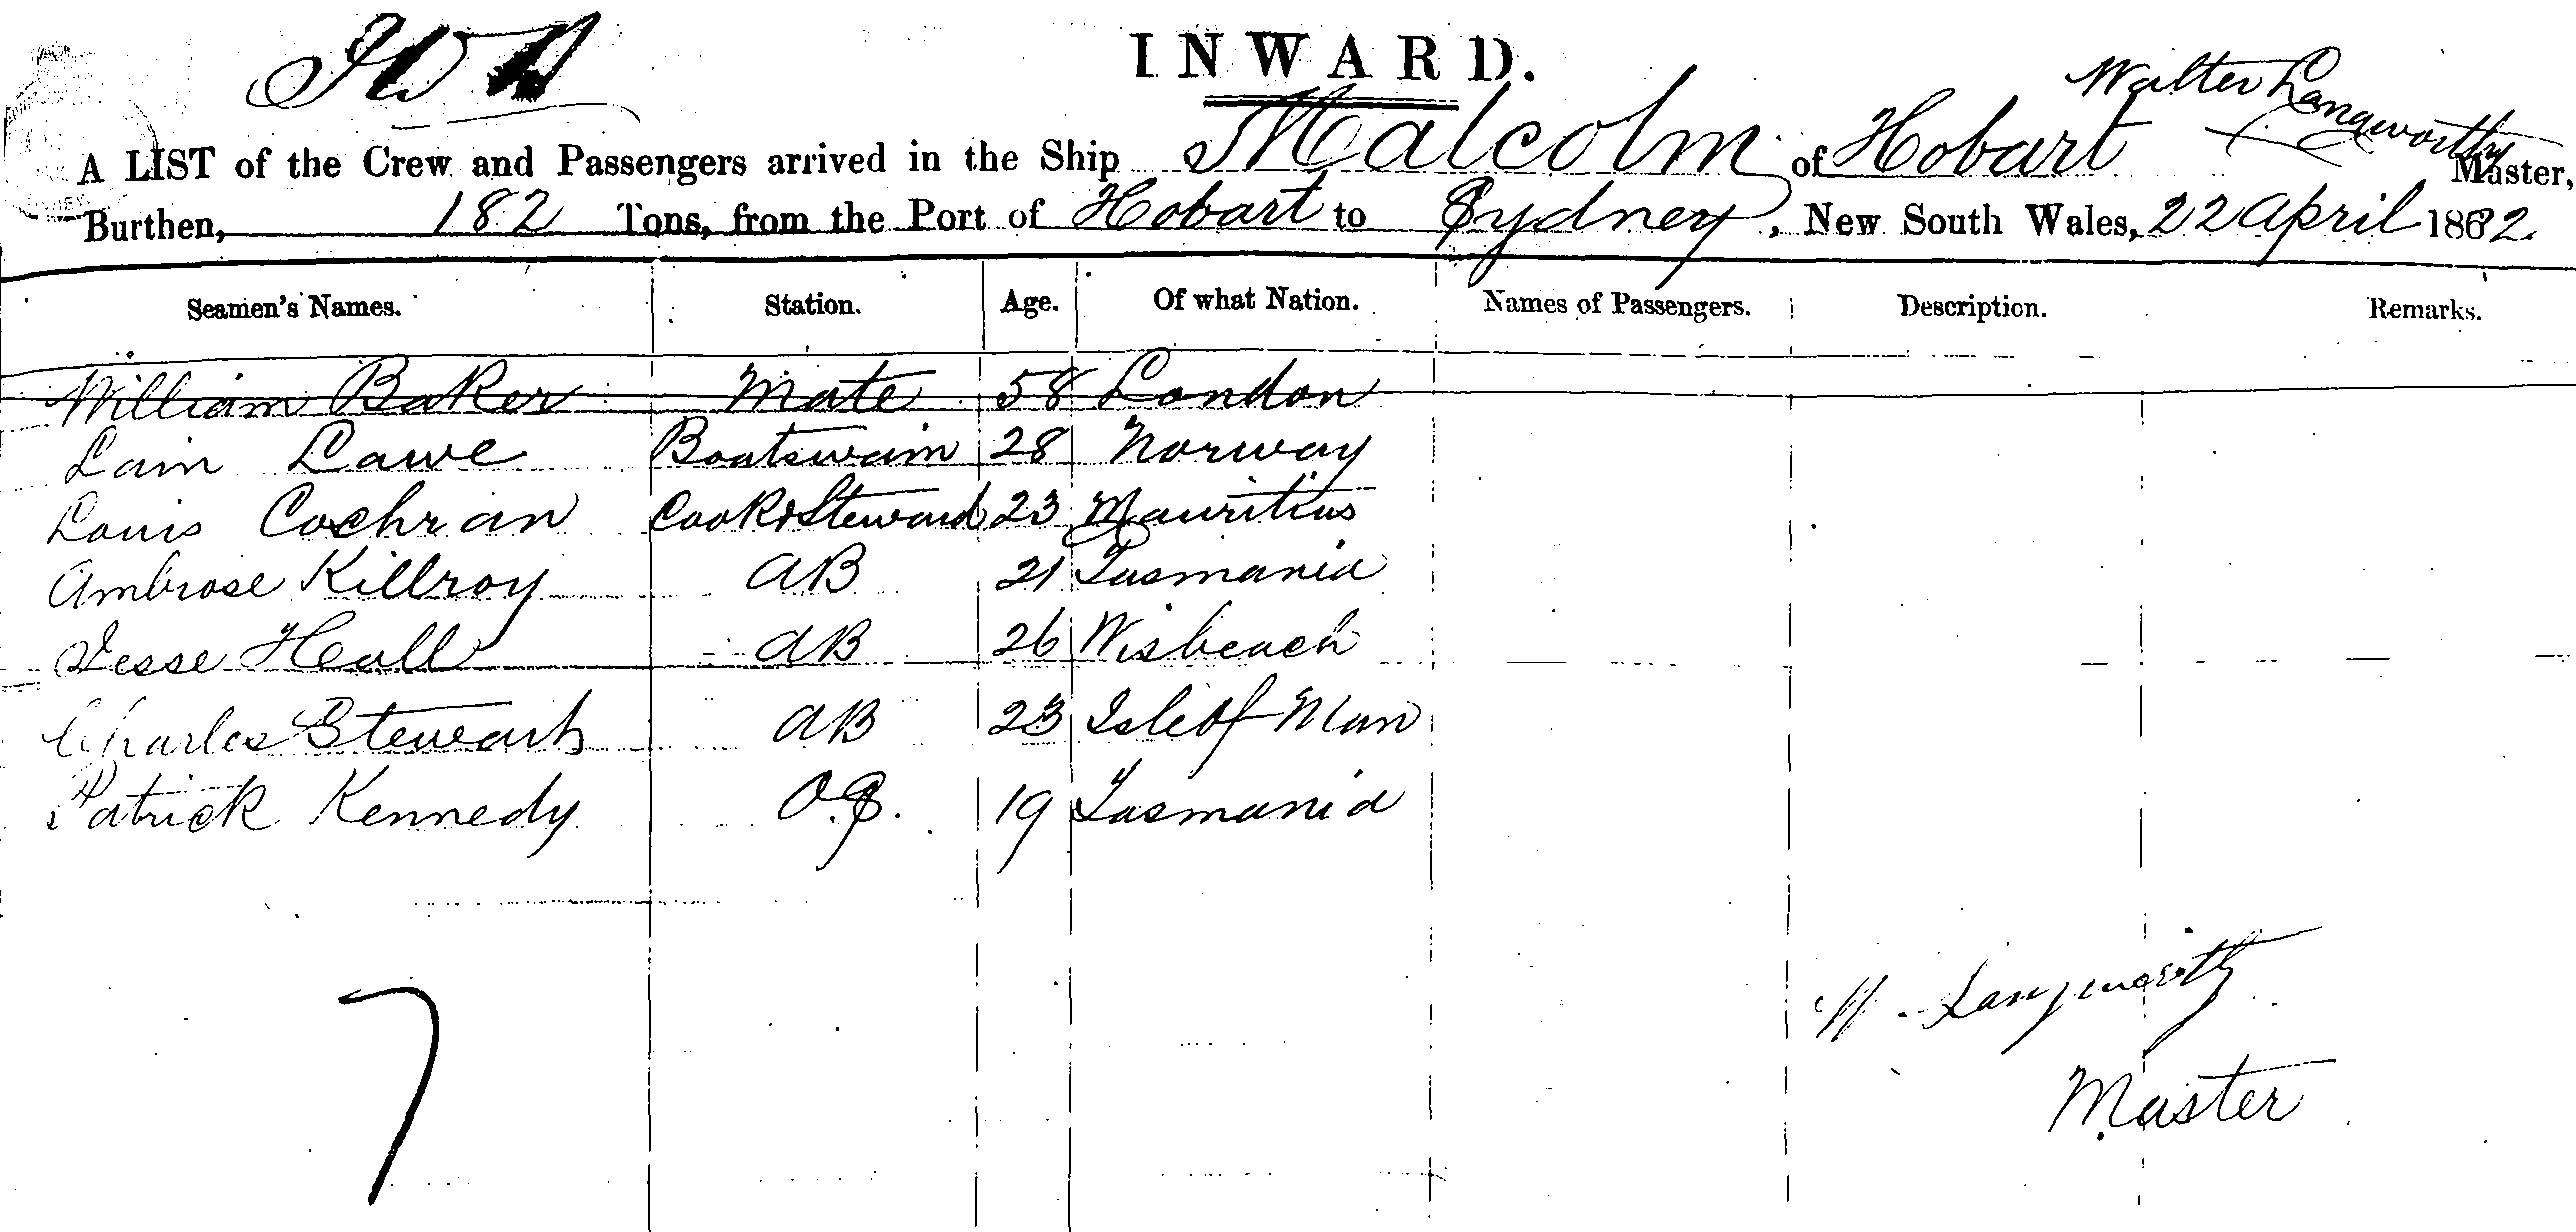 INWARD.
Walter Langworthy
A LIST of the Crew and Passengers arrived in the Ship Malcolm of Hobart Master,
Burthen, 182 Tons, from the Port of Hobart to Sydney, New South Wales, 22 April 1882.
Seamen's Names. Station. Age. Of what Nation. Names of Passengers. Description. Remarks.
William Baker Mate 58 London
Lain Lawe Boatswain 28 Norway
Louis Cochran Cook & Steward 23 Mauritius
Ambrose Killroy AB 21 Tasmania
Jesse Heall AB 26 Wisbeach
Charles Stewart AB 23 Isle of Man
Patrick Kennedy O.S. 19 Tasmania
W. Langworthy
Master
7